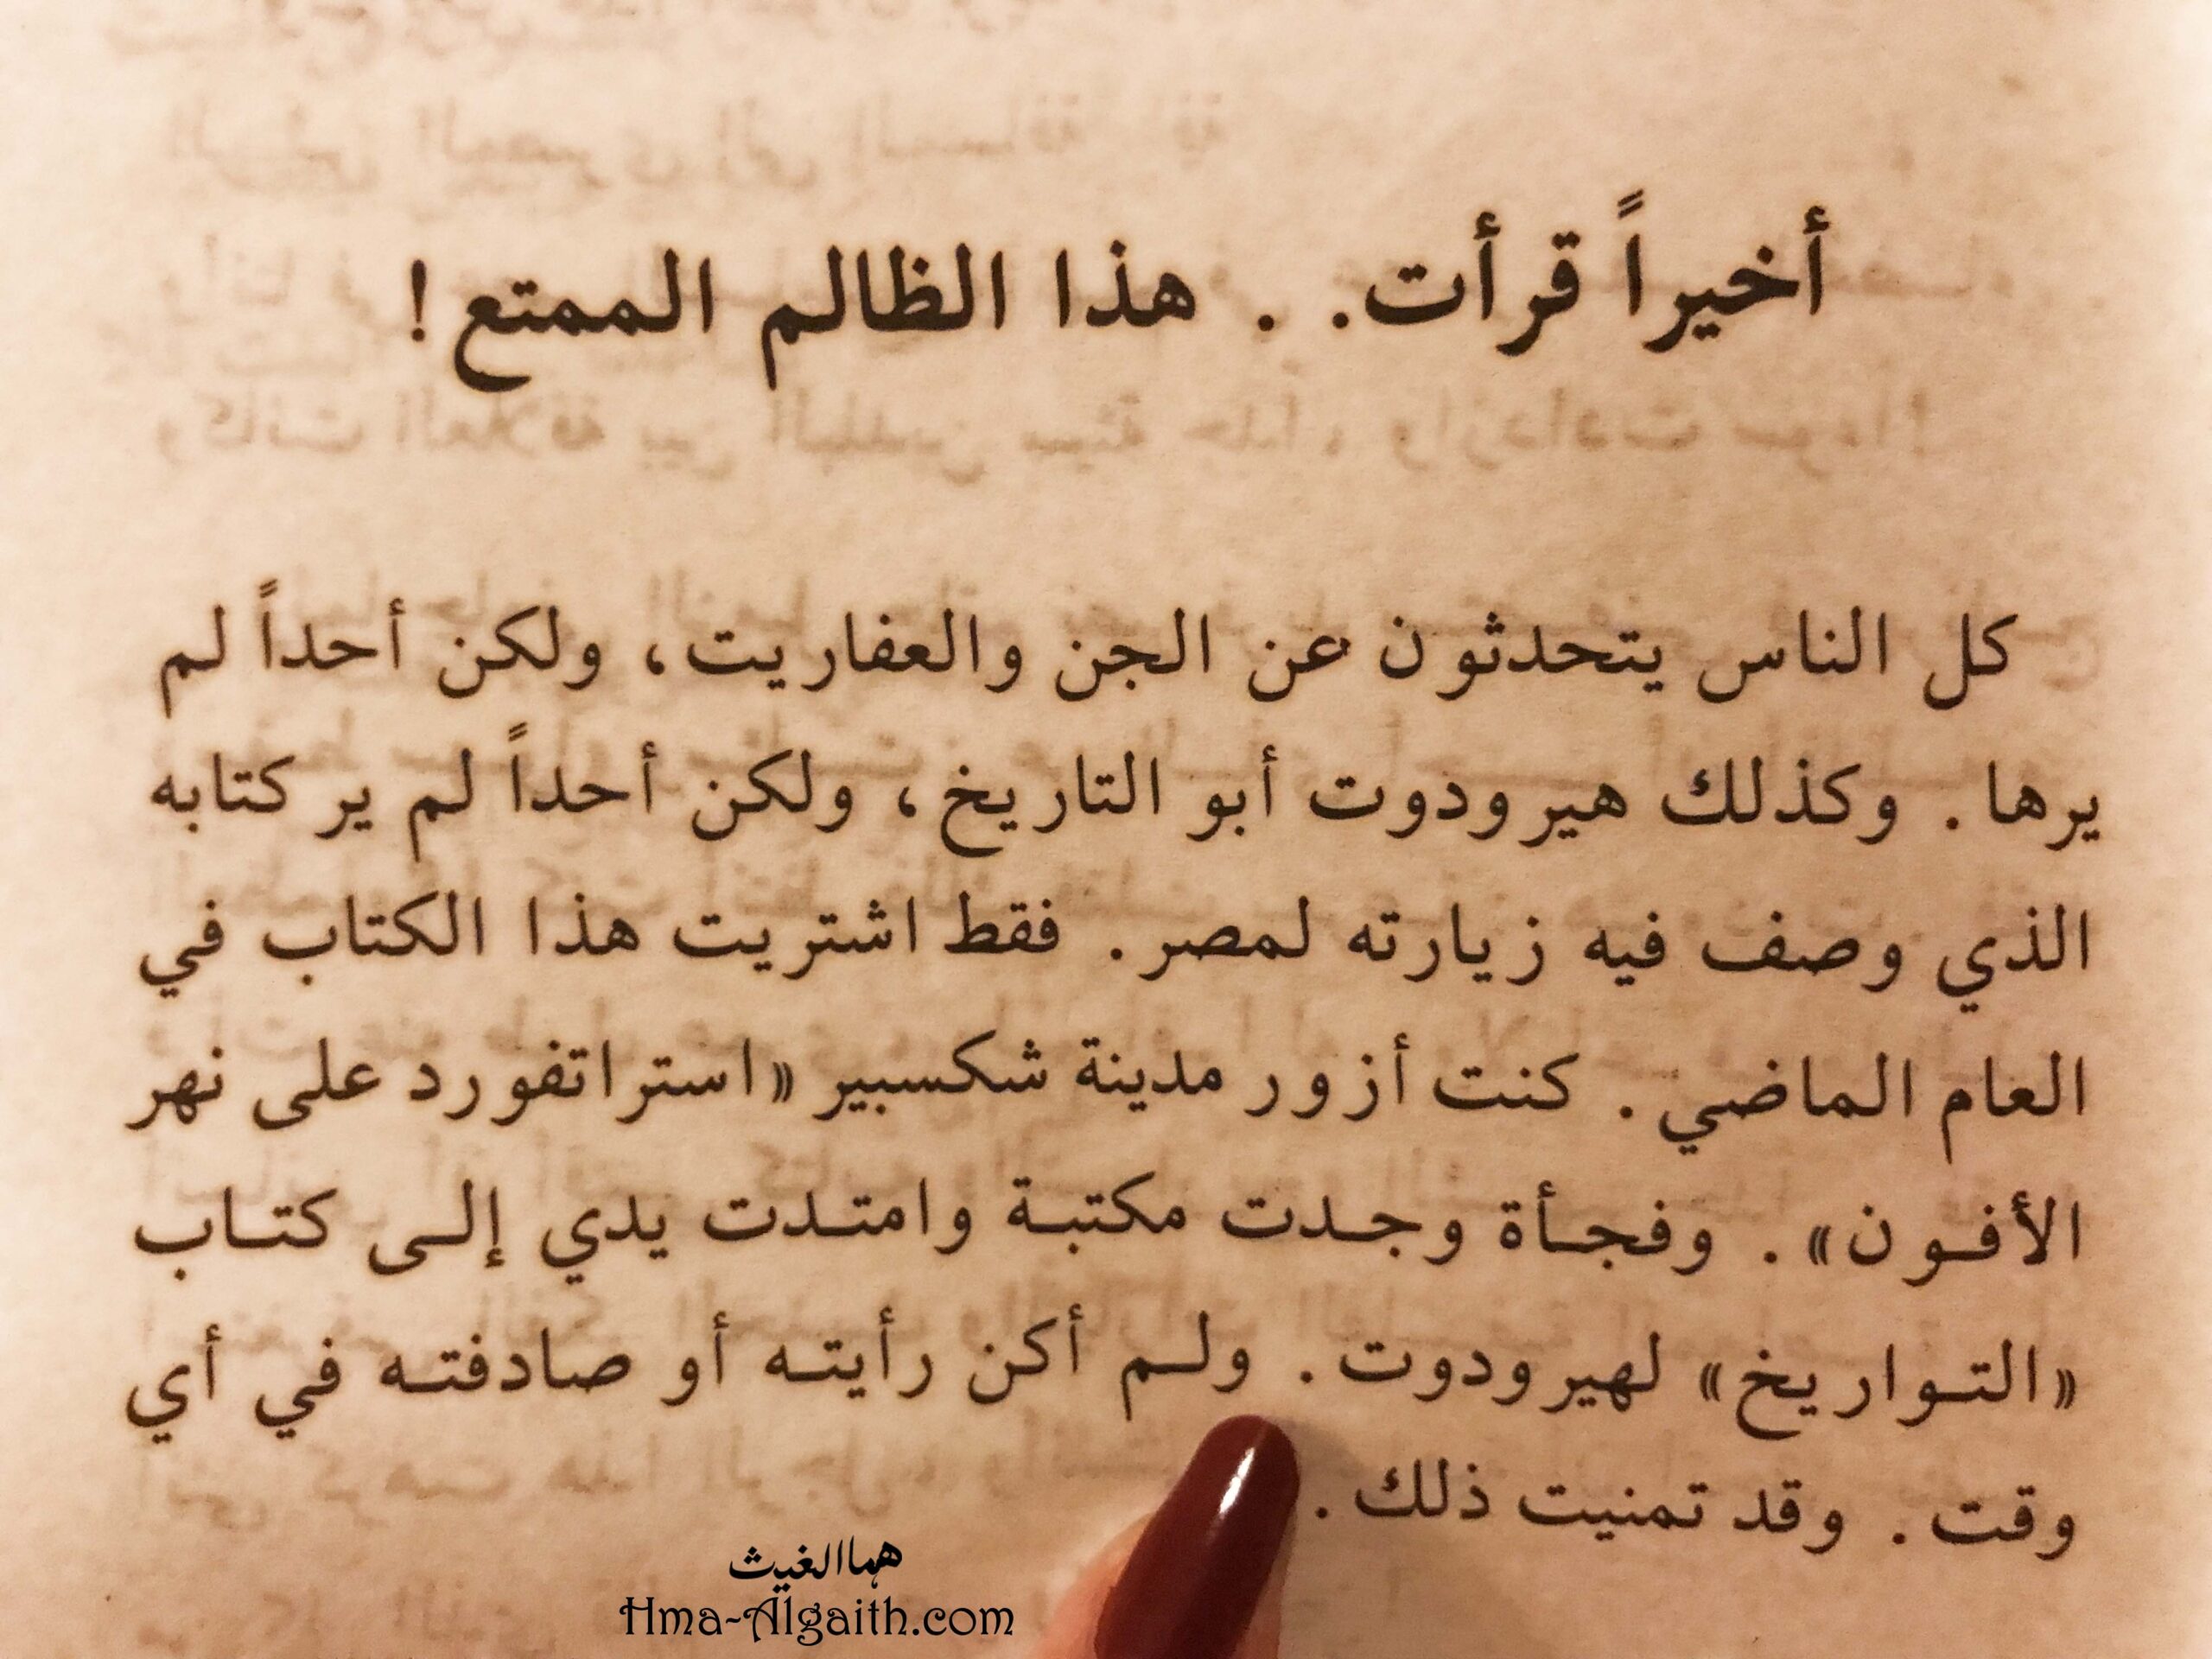 أخيراً قرأت. . هذا الظالم الممتع !
كل الناس يتحدثون عن الجن والعفاريت، ولكن أحداً لم
يرها. وكذلك هيرودوت أبو التاريخ، ولكن أحداً لم ير كتابه
الذي وصف فيه زيارته لمصر. فقط اشتريت هذا الكتاب في
العام الماضي. كنت أزور مدينة شكسبير «استراتفورد على نهر
الأفـون». وفجـأة وجـدت مكتبـة وامتـدت يدي إلـى كتـاب
«التـواريخ» لهيرودوت. ولـم أكن رأيتـه أو صادفتـه في أي
وقت. وقد تمنيت ذلك.
هماالغيث
Hma-Algaith.com